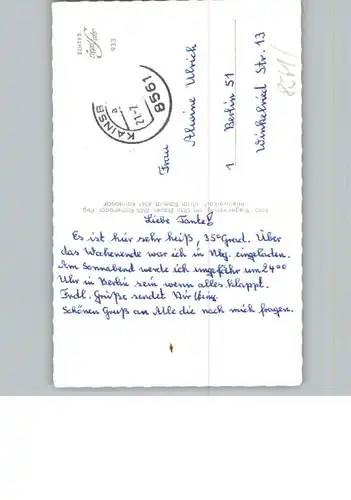 Liebe Tante!
Es ist hier sehr heiß, 35°Grad. Über
das Wochenende war ich in Nbg. eingeladen.
Am Sonnabend werde ich ungefähr um 24⁰⁰
Uhr in Berlin sein wenn alles klappt.
Frdl. Grüße sendet Dir
Schönen Gruß an Alle die nach mir fragen.
Frau
Alwine Ulrich
1 Berlin 51
Winkelried Str. 13
8561
KAINSB
a
21.-7.
8561
933